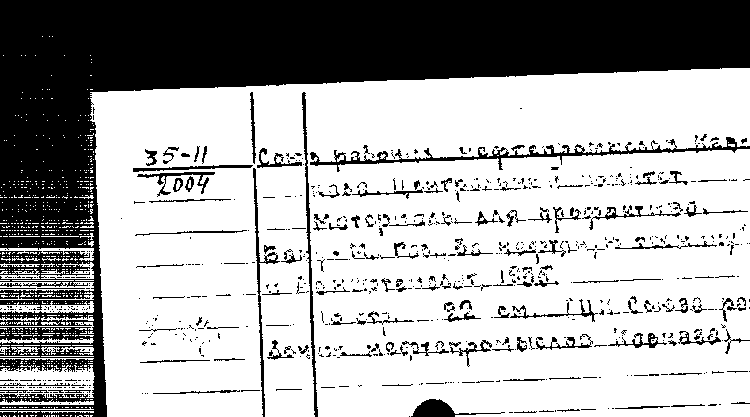 35-11
2004
Союз рабочих нефтепромыслов Кав-
каза. Центральный комитет.
Материалы для профактива.
Баку - М., Газ. "За нефтян, ю технику"
и Азнефтеиздат, 1935.
16 стр. 22 см. (ЦК Союза ра
бочих нефтепромыслов Кавказа).